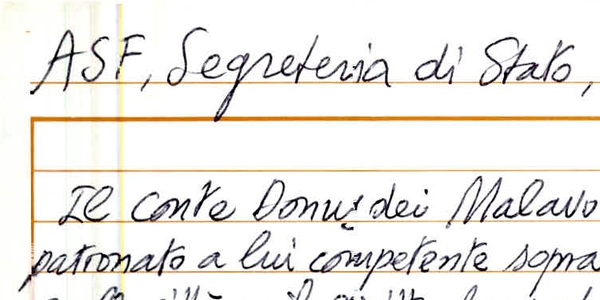 ASF, Segreteria di Stato,
Il conte dei Malavo
patronato a lui competente sopra